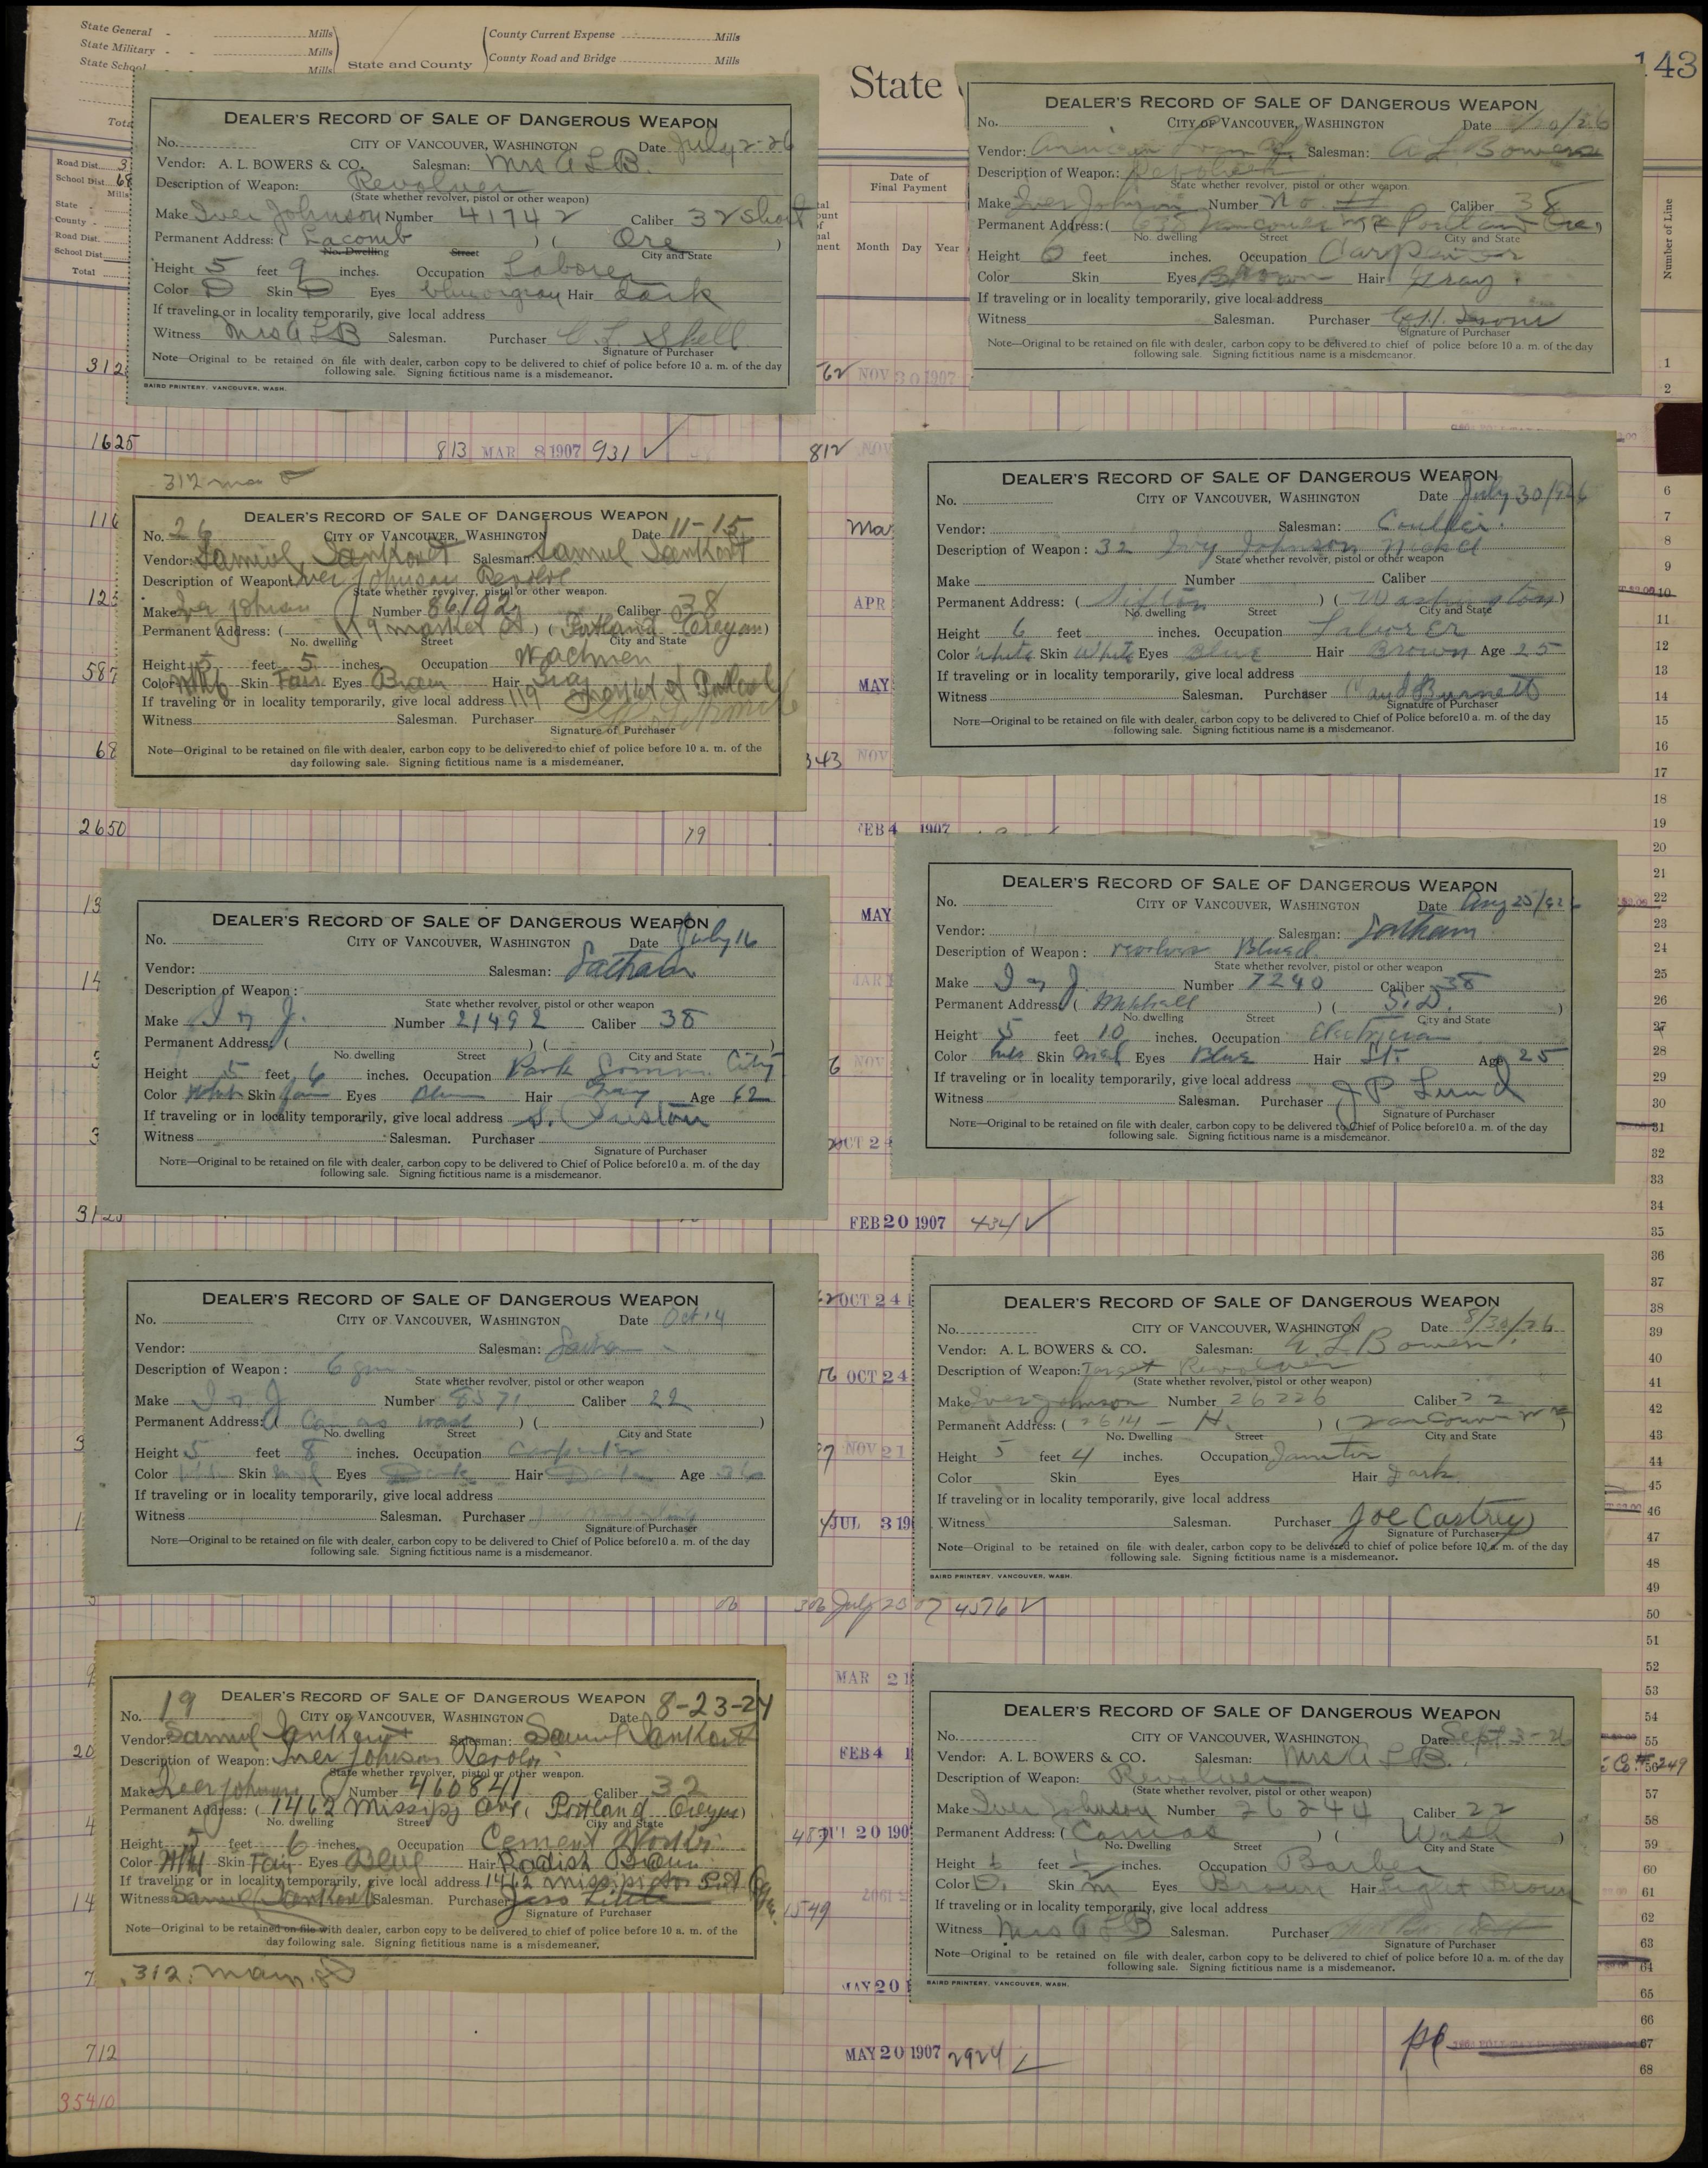 State General - Mills
State Military - - Mills
State School Mills
State and County
County Current Expense Mills
County Road and Bridge Mills
State
143
Road Dist. 3
School Dist. 68
Mills
State -
County -
Road Dist.
School Dist.
Total
Date of
Final Payment
Month Day Year
Number of Line
DEALER'S RECORD OF SALE OF DANGEROUS WEAPON
No. CITY OF VANCOUVER, WASHINGTON Date July 2-26
Vendor: A. L. BOWERS & CO. Salesman: Mrs A L B.
Description of Weapon: Revolver
(State whether revolver, pistol or other weapon)
Make Iver Johnson Number 41742 Caliber 32 Short
Permanent Address: ( Lacomb ) ( Ore )
No. Dwelling Street City and State
Height 5 feet 9 inches. Occupation Laborer
Color D Skin D Eyes blue or gray Hair dark
If traveling or in locality temporarily, give local address
Witness Mrs A L B Salesman. Purchaser C. L. Shell
Signature of Purchaser
Note—Original to be retained on file with dealer, carbon copy to be delivered to chief of police before 10 a. m. of the day
following sale. Signing fictitious name is a misdemeanor.
BAIRD PRINTERY, VANCOUVER, WASH.
DEALER'S RECORD OF SALE OF DANGEROUS WEAPON
No. CITY OF VANCOUVER, WASHINGTON Date /20/26
Vendor: Salesman: A L Bowers
Description of Weapon: Revolver
State whether revolver, pistol or other weapon.
Make Iver Johnson Number No. Caliber 38
Permanent Address: ( Vancouver Portland Ore )
No. dwelling Street City and State
Height 6 feet inches. Occupation Carpenter
Color Skin Eyes Brown Hair Gray
If traveling or in locality temporarily, give local address
Witness Salesman. Purchaser
Signature of Purchaser
Note—Original to be retained on file with dealer, carbon copy to be delivered to chief of police before 10 a. m. of the day
following sale. Signing fictitious name is a misdemeanor.
312
62 NOV 30 1907
1625
813 MAR 8 1907 931 ✓
812 NOV
312 main
DEALER'S RECORD OF SALE OF DANGEROUS WEAPON
No. 26 CITY OF VANCOUVER, WASHINGTON Date 11-15
Vendor: Samuel Jankowt Salesman: Samuel Jankowt
Description of Weapon: Iver Johnson Revolv
State whether revolver, pistol or other weapon.
Make Iver Johnson Number 86192 Caliber 38
Permanent Address: ( 119 market st ) ( Portland Oregon )
No. dwelling Street City and State
Height 5 feet 5 inches. Occupation Wachmen
Color White Skin Fair Eyes Brown Hair Gray
If traveling or in locality temporarily, give local address 119 market st Portland
Witness Salesman. Purchaser
Signature of Purchaser
Note—Original to be retained on file with dealer, carbon copy to be delivered to chief of police before 10 a. m. of the
day following sale. Signing fictitious name is a misdemeaner.
DEALER'S RECORD OF SALE OF DANGEROUS WEAPON
No. CITY OF VANCOUVER, WASHINGTON Date July 30/926
Vendor: Salesman: Coulter.
Description of Weapon: 32 Ivy Johnson Nickel
State whether revolver, pistol or other weapon
Make Number Caliber
Permanent Address: ( Sifton ) ( Washington )
No. dwelling Street City and State
Height 6 feet inches. Occupation Laborer
Color White Skin White Eyes Blue Hair Brown Age 25
If traveling or in locality temporarily, give local address
Witness Salesman. Purchaser Burnett
Signature of Purchaser
NOTE—Original to be retained on file with dealer, carbon copy to be delivered to Chief of Police before10 a. m. of the day
following sale. Signing fictitious name is a misdemeanor.
2650
79
FEB 4 1907
DEALER'S RECORD OF SALE OF DANGEROUS WEAPON
No. CITY OF VANCOUVER, WASHINGTON Date July 16
Vendor: Salesman: Latham
Description of Weapon:
State whether revolver, pistol or other weapon
Make I & J. Number 21492 Caliber 38
Permanent Address: ( ) ( )
No. dwelling Street City and State
Height 5 feet 6 inches. Occupation Park Comm. City
Color White Skin Eyes Blue Hair Gray Age 62
If traveling or in locality temporarily, give local address S.
Witness Salesman. Purchaser
Signature of Purchaser
NOTE—Original to be retained on file with dealer, carbon copy to be delivered to Chief of Police before10 a. m. of the day
following sale. Signing fictitious name is a misdemeanor.
DEALER'S RECORD OF SALE OF DANGEROUS WEAPON
No. CITY OF VANCOUVER, WASHINGTON Date Aug 25/926
Vendor: Salesman: Latham
Description of Weapon: revolver Blued.
State whether revolver, pistol or other weapon
Make I & J. Number 7290 Caliber 38
Permanent Address ( Mitchell ) ( S.D. )
No. dwelling Street City and State
Height 5 feet 10 inches. Occupation Electrician
Color Skin Med Eyes Blue Hair Lt. Age 25
If traveling or in locality temporarily, give local address
Witness Salesman. Purchaser J P Lund
Signature of Purchaser
NOTE—Original to be retained on file with dealer, carbon copy to be delivered to Chief of Police before10 a. m. of the day
following sale. Signing fictitious name is a misdemeanor.
3125
FEB 20 1907 434 ✓
DEALER'S RECORD OF SALE OF DANGEROUS WEAPON
No. CITY OF VANCOUVER, WASHINGTON Date Oct 14
Vendor: Salesman: Latham
Description of Weapon: 6
State whether revolver, pistol or other weapon
Make I & J Number 8571 Caliber 22
Permanent Address: ( Camas wash ) ( )
No. dwelling Street City and State
Height 5 feet 8 inches. Occupation Carpenter
Color Skin Eyes Dark Hair Dark Age 36
If traveling or in locality temporarily, give local address
Witness Salesman. Purchaser
Signature of Purchaser
NOTE—Original to be retained on file with dealer, carbon copy to be delivered to Chief of Police before10 a. m. of the day
following sale. Signing fictitious name is a misdemeanor.
DEALER'S RECORD OF SALE OF DANGEROUS WEAPON
No. CITY OF VANCOUVER, WASHINGTON Date 8/30/26
Vendor: A. L. BOWERS & CO. Salesman: A. L. Bowers
Description of Weapon: Target Revolver
(State whether revolver, pistol or other weapon)
Make Iver Johnson Number 26226 Caliber 22
Permanent Address: ( 2614 - H. ) ( Vancouver Wn )
No. Dwelling Street City and State
Height 5 feet 4 inches. Occupation Janitor
Color Skin Eyes Hair Dark
If traveling or in locality temporarily, give local address
Witness Salesman. Purchaser Joe Castrey
Signature of Purchaser
Note—Original to be retained on file with dealer, carbon copy to be delivered to chief of police before 10 a. m. of the day
following sale. Signing fictitious name is a misdemeanor.
BAIRD PRINTERY, VANCOUVER, WASH.
306 July 23 07 4576 ✓
DEALER'S RECORD OF SALE OF DANGEROUS WEAPON
No. 19 CITY OF VANCOUVER, WASHINGTON Date 8-23-24
Vendor: Samuel Jankowt Salesman: Samuel Jankowt
Description of Weapon: Iver Johnson Revolv
State whether revolver, pistol or other weapon.
Make Iver Johnson Number 460841 Caliber 32
Permanent Address: ( 1462 Missipj ave, Portland Oregon )
No. dwelling Street City and State
Height 5 feet 6 inches. Occupation Cement Worker
Color Skin Fair Eyes Blue Hair Radish Brown
If traveling or in locality temporarily, give local address 1462
Witness Samuel Jankowt Salesman. Purchaser Jess Little
Signature of Purchaser
Note—Original to be retained on file with dealer, carbon copy to be delivered to chief of police before 10 a. m. of the
day following sale. Signing fictitious name is a misdemeaner.
312. main. st
DEALER'S RECORD OF SALE OF DANGEROUS WEAPON
No. CITY OF VANCOUVER, WASHINGTON Date Sept 3-26
Vendor: A. L. BOWERS & CO. Salesman: Mrs A L B.
Description of Weapon: Revolver
(State whether revolver, pistol or other weapon)
Make Iver Johnson Number 26244 Caliber 22
Permanent Address: ( Camas ) ( Wash )
No. Dwelling Street City and State
Height feet inches. Occupation Barber
Color D. Skin m Eyes Brown Hair Light Brown
If traveling or in locality temporarily, give local address
Witness Mrs A L B Salesman. Purchaser
Signature of Purchaser
Note—Original to be retained on file with dealer, carbon copy to be delivered to chief of police before 10 a. m. of the day
following sale. Signing fictitious name is a misdemeanor.
BAIRD PRINTERY, VANCOUVER, WASH.
712
MAY 20 1907 2924 ✓
35410